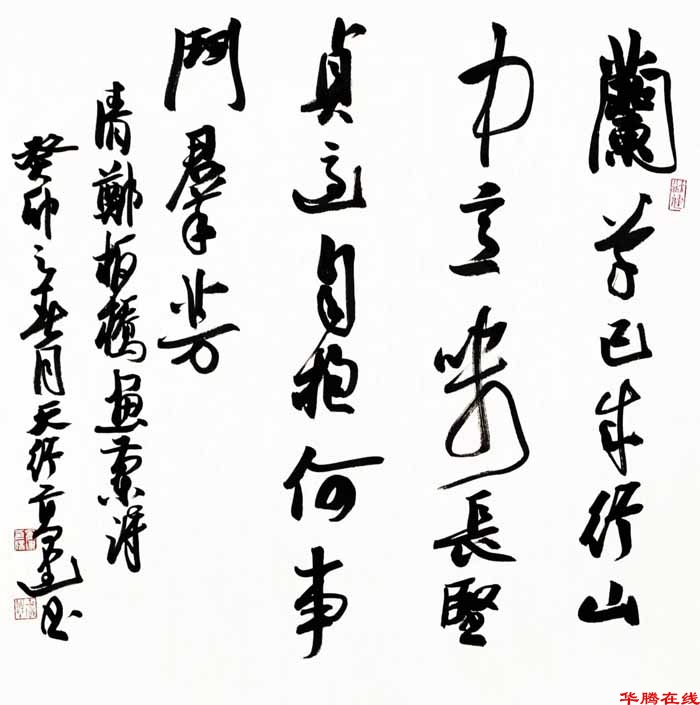 蘭草已成行山
中意味長堅
貞還自抱何事
鬥羣芳
清鄭板橋畫蘭詩
癸卯之春月天行建书
华腾在线